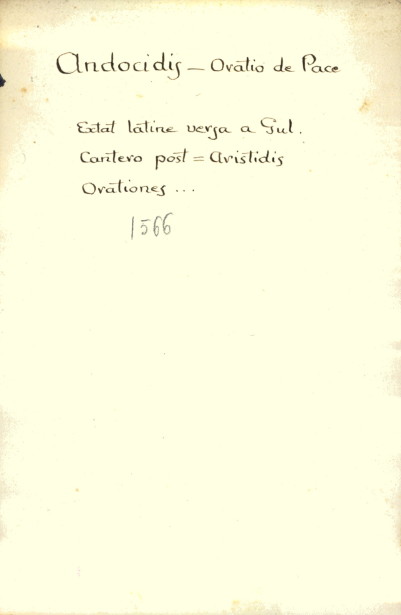 Andocidis — Oratio de Pace
Extat latine versa a Gul.
Cantero post = Aristidis
Orationes ...
1566